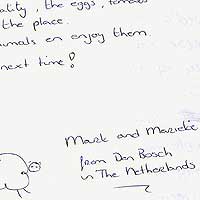 ality, the eggs,
the place.
en enjoy them.
next time!
Mark and Marieke
from Den Bosch
in The Netherlands